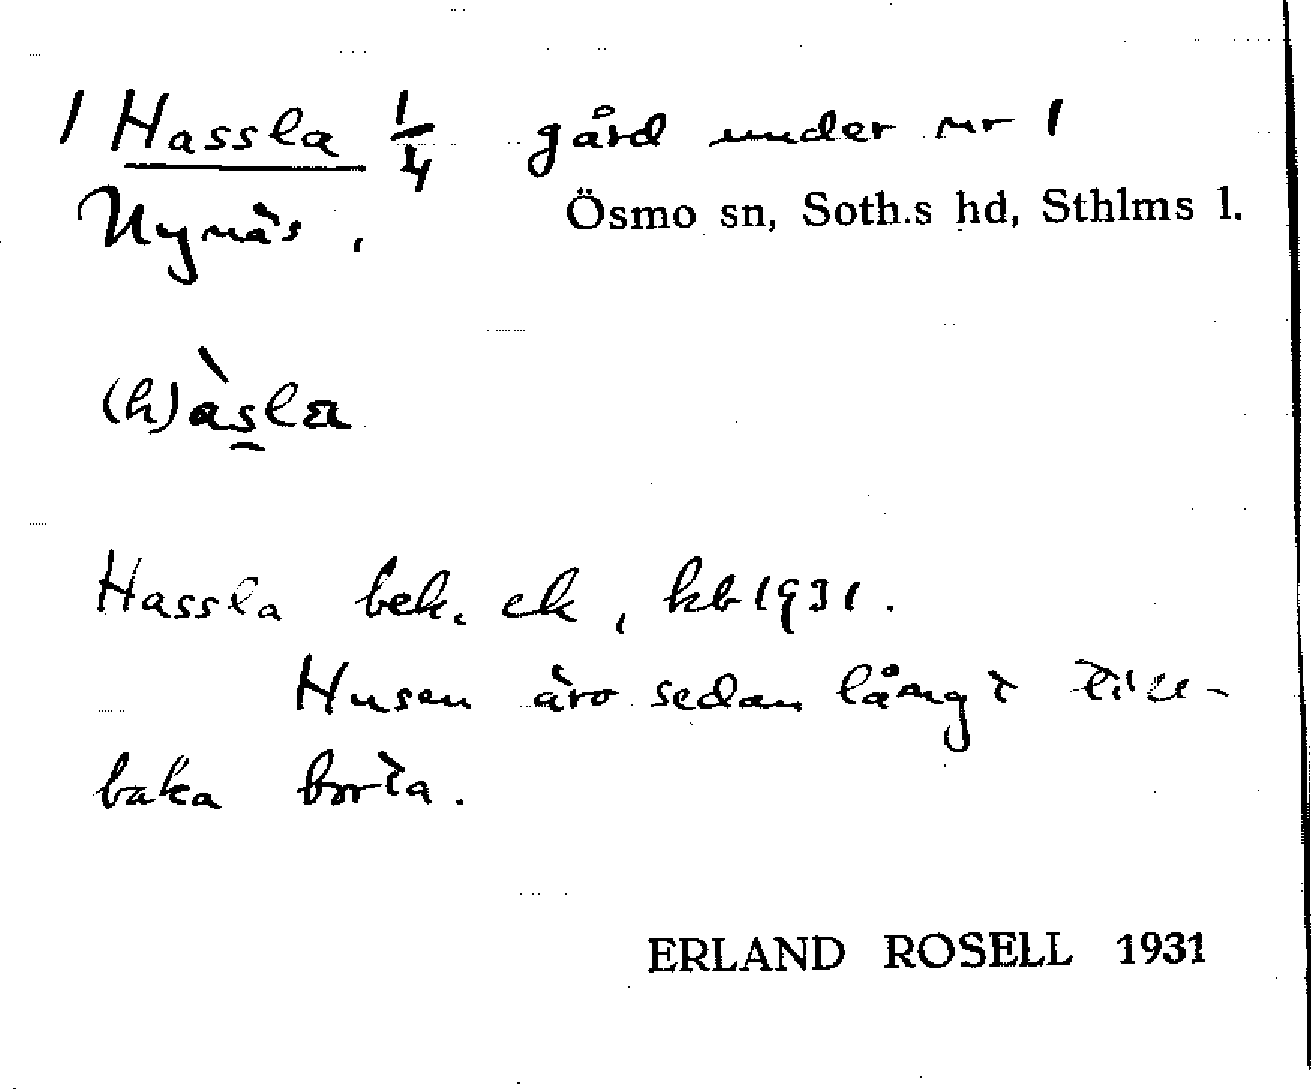 1 Hassla 1/4 gård under nr 1
Nynäs. Ösmo sn, Soth.s hd, Sthlms l.
(h)àsla
Hassla bek. ek, kb 1931.
Husen äro sedan långt till-
baka borta.
ERLAND ROSELL 1931